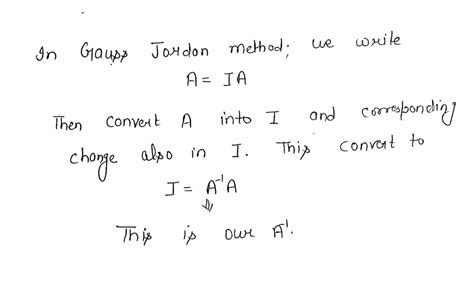 In Gauss Jordon method; we write
A = IA
Then convert A into I and corresponding
change also in I. This convert to
I = A⁻¹A
⇓
This is our A⁻¹.